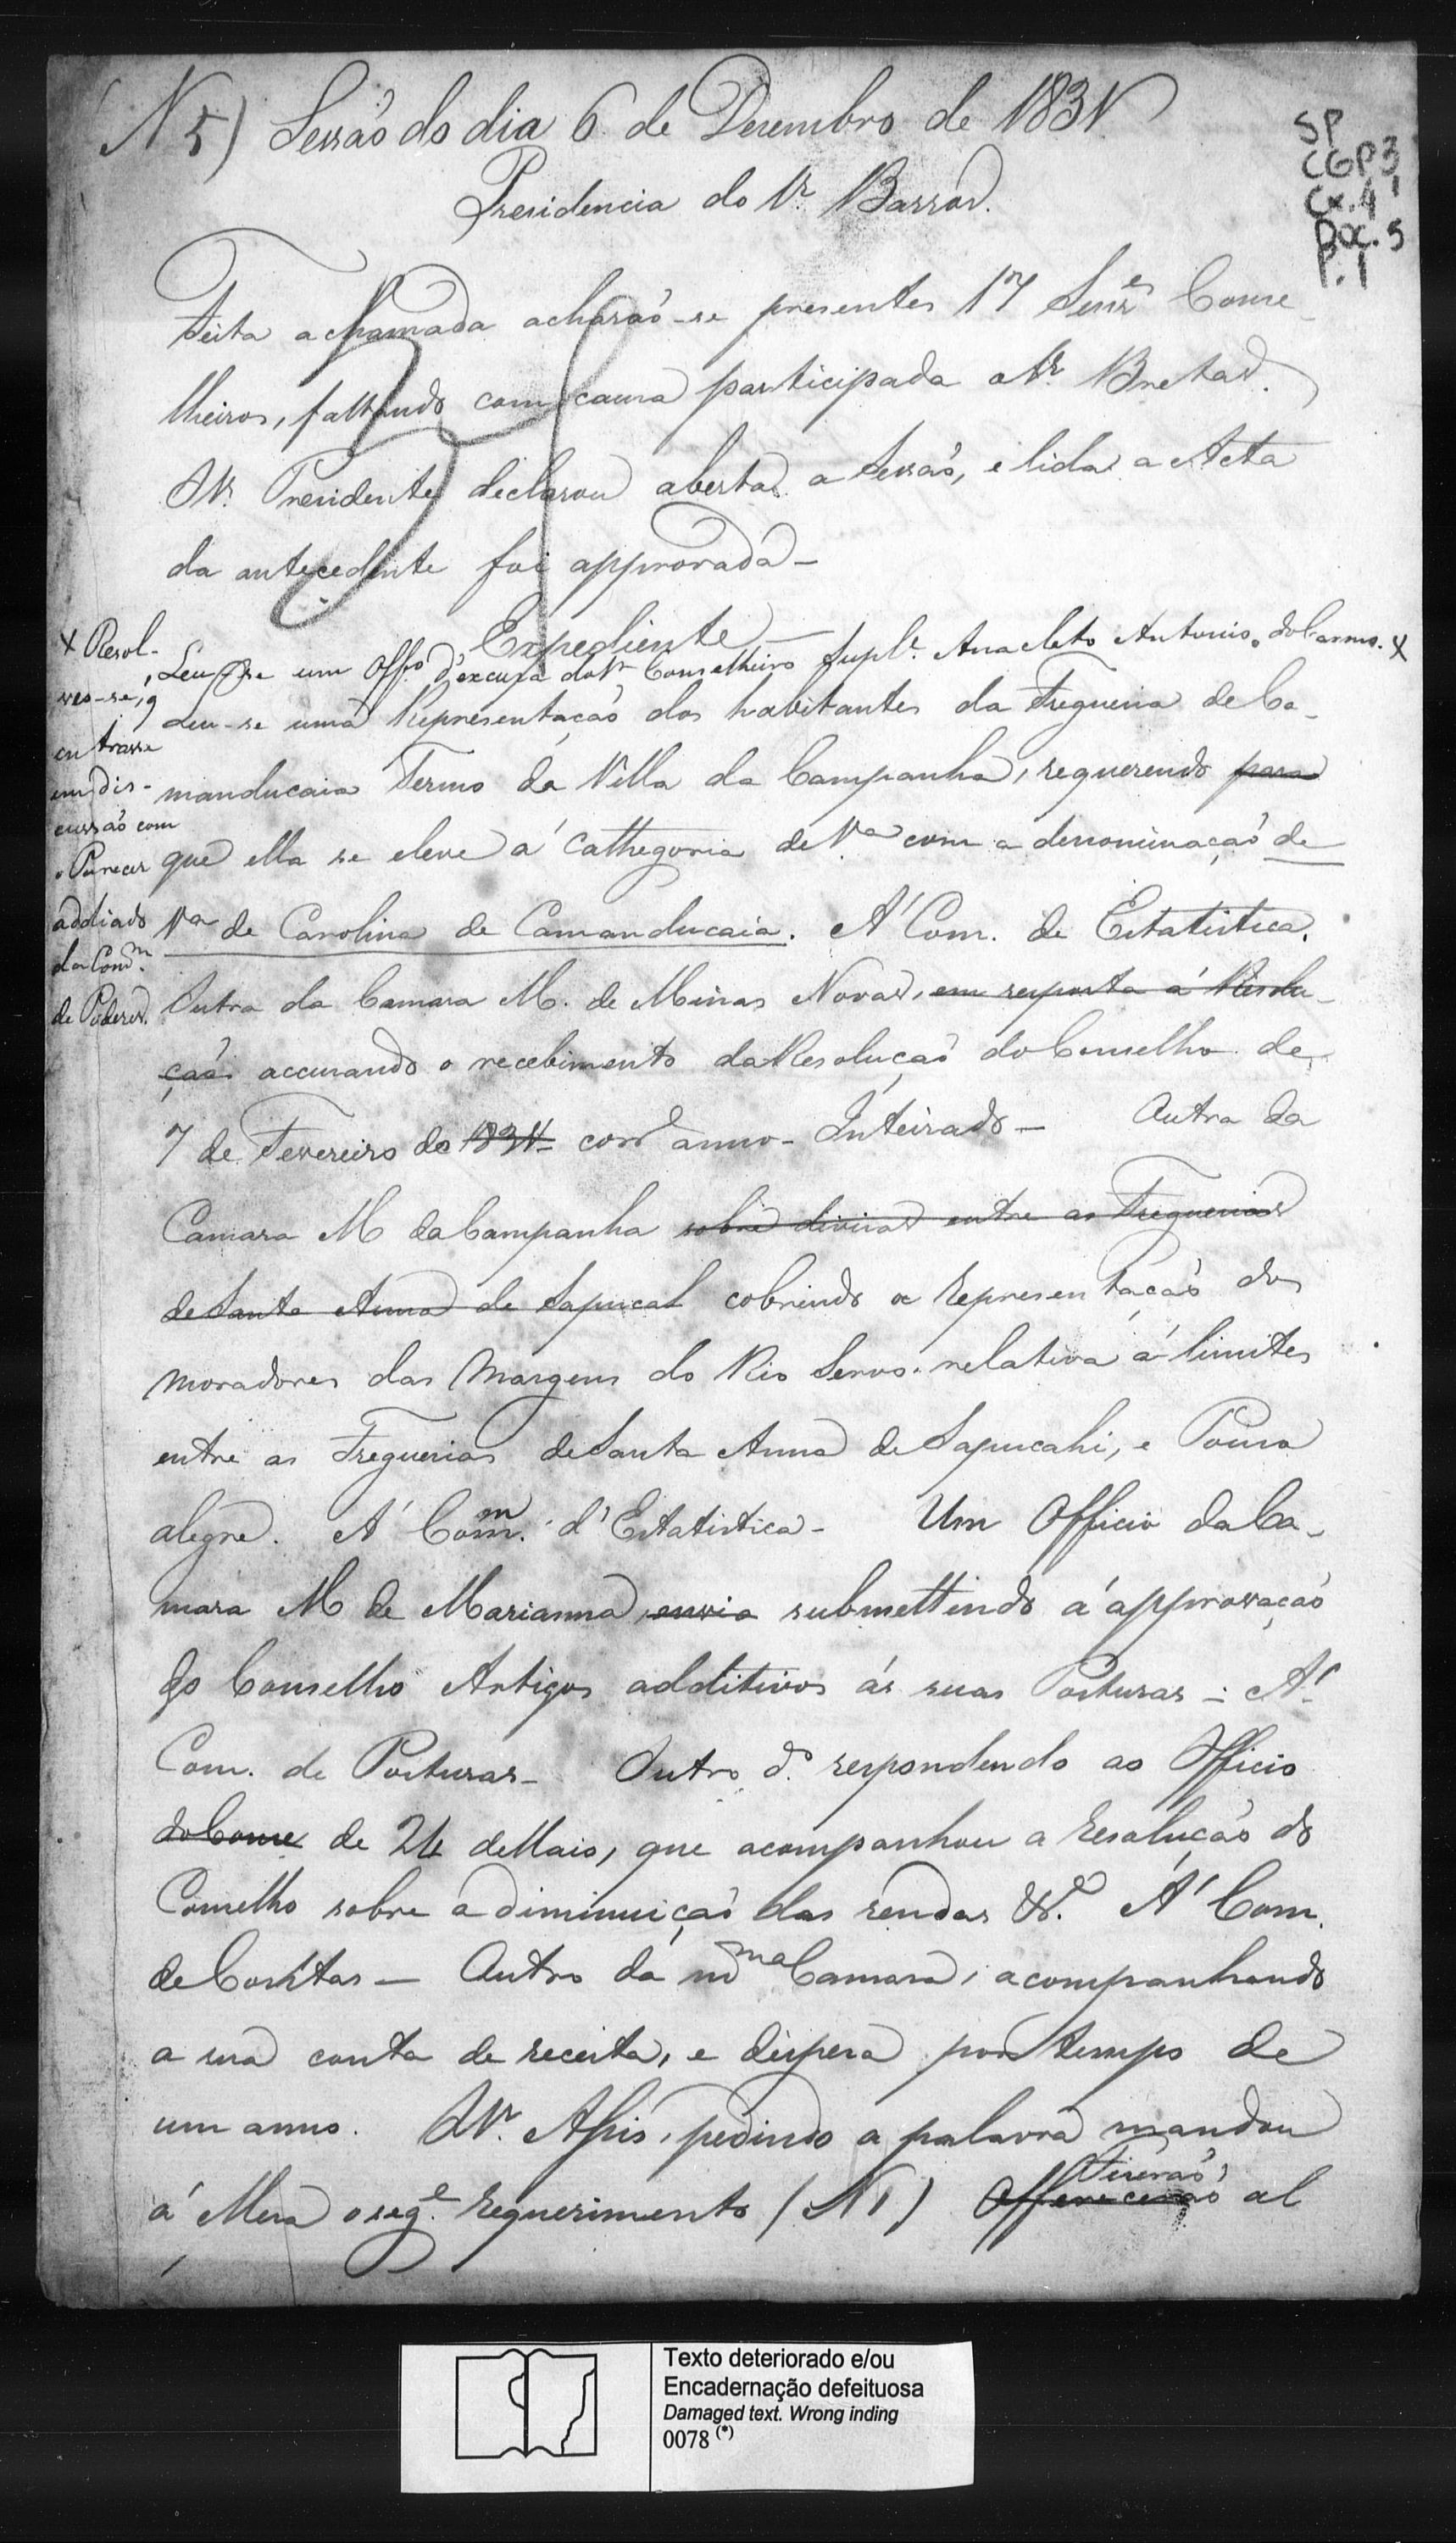 N 5) Sessaõ do dia 6 de Dezembro de 1831
SP
CGP3
Cx. 4
Doc. 5
P. 1
Presidencia do Sr. Barros.
Feita a chamada acharaõ-se presentes 17 Senres Conse-
lheiros, faltando com causa participada o Sr. Bretas.
O Sr. Presidente declarou aberta a Sessaõ, e lida a Acta
da antecedente foi approvada -
Expediente -
Leu-se um Offo d'excusa do Sr Conselheiro Suple. Anacleto Antonio do Carmo. X
X Resol-
veo-se, q
entrasse
em dis-
cussaõ com
o Parecer
addiado
da Comm.
de Poderes.
Leu-se uma Representaçaõ dos habitantes da Freguesia de Ca-
manducaia Termo da Villa da Campanha, requerendo para
que ella se eleve á Cathegoria de Va com a denominaçaõ de
Va de Carolina de Camanducaia. Á Com. de Estatistica.
Outra da Camara M. de Minas Novas, em resposta á Resolu-
çaõ accusando o recebimento da Resoluçaõ do Conselho de
7 de Fevereiro do 1831 corre anno - Inteirado - Outra da
Camara M da Campanha sobre divisas entre as Freguesias
de Santa Anna de Sapucaí cobrindo a Representaçaõ dos
moradores das Margens do Rio Servo relativa á limites
entre as Freguesias de Santa Anna de Sapucahi, e Pouso
alegre. Á Comm. d'Estatistica - Um Officio da Ca-
mara M de Marianna envia submettindo á approvaçaõ
do Conselho Artigos additivos ás suas Posturas - Á
Com. de Posturas - Outro do. respondendo ao Officio
do Conse de 24 de Maio, que acompanhou a Resoluçaõ do
Conselho sobre a diminuiçaõ das rendas &. Á Com.
de Contas - Outro da mma Camara, acompanhando
a sua conta de receita, e dispesa por tempo de
um anno. O Sr. Assis, pedindo a palavra mandou
á Mesa o sege. requerimento (N 1) Offereceraõ Fiseraõ al
Texto deteriorado e/ou
Encadernação defeituosa
Damaged text. Wrong inding
0078 (*)